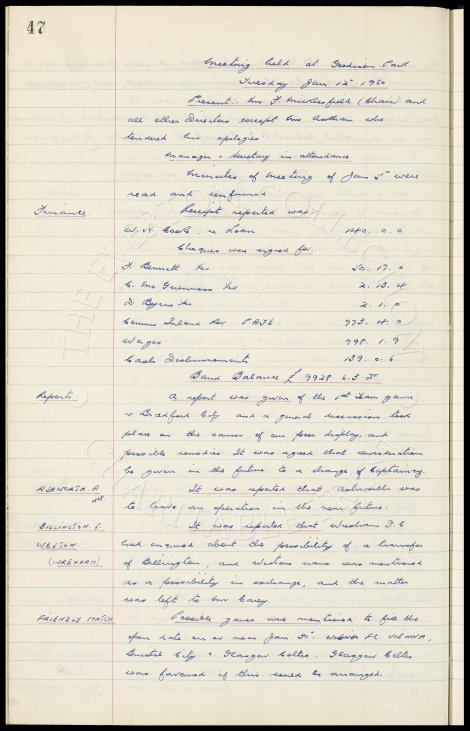 47
Meeting held at Goodison Park
Tuesday Jan 12th 1960
Present: Mr F Micklesfield (Chair) and
all other Directors except Mr who
tendered his apologies
Manager & Secretary in attendance
Minutes of meeting of Jan 5th were
read and confirmed
Finance. Receipt reported was:-
W. H. Cooke. re Loan 140. 0. 0
Cheques were signed for:-
F. Bennett Xes 50. 17. 0
C. Mc Guinness Xes 2. 13. 4
D. Byrne Xes 2. 1. 0
Comms Inland Rev P A Y E 773. 4. 0
Wages 798. 1. 9
Cash Disbursements 139. 0. 6
Bank Balance £ 9928. 6. 3
Reports A report was given of the 1st Team game
v Bradford City and a general discussion took
place on the causes of our poor display, and
possible remedies. It was agreed that consideration
be given in the future to a change of Captaincy.
ASHWORTH. A It was reported that Ashworth was
to have an operation in the near future.
BILLINGTON. S. It was reported that Wrexham F.C
WESTON. had enquired about the possibility of a transfer
(WREXHAM) of Billington, and Westons name was mentioned
as a possibility in exchange, and the matter
was left to Mr Carey.
FRIENDLY MATCH Possible games were mentioned to fill the
open date on or near Jan. 30th. F.C. VIENNA,
Bristol City & Glasgow Celtic. Glasgow Celtic
was favoured if this could be arranged.
THE EVERTON COLLECTION